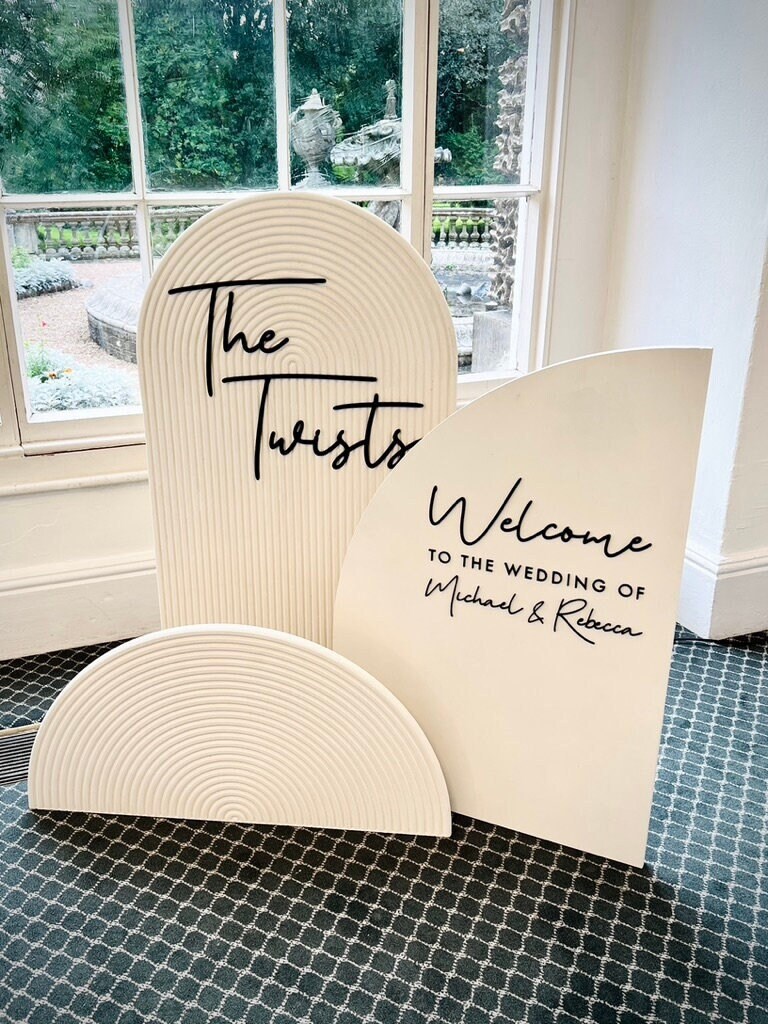 The
Twists
Welcome
TO THE WEDDING OF
Michael & Rebecca